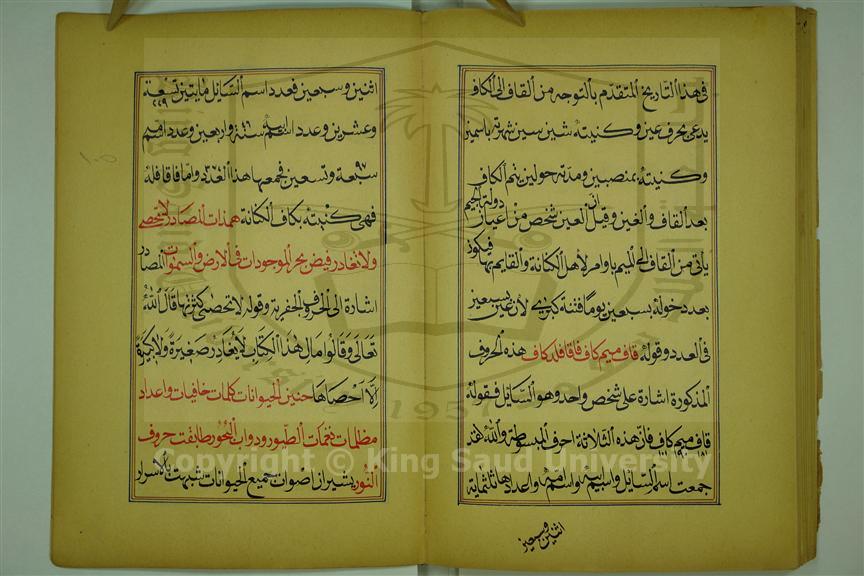 في هذا التاريخ المتقدم بالتوجه من القاف الى الكاف
يدعى بحرف عين وكنيته شين سين شهرته باسمين
وكنيته بمنصبين ومدته حولين يتم الكاف
بعد القاف والغين وقيل ان العين شخص من اعيان دولة الجيم
ياتي من القاف الى الميم باوامر لاهل الكنانة والقايم بها فيكون
بعد دخوله بسبعين يوما فتنة كبرى لان عين بسبعين
في العدد وقوله قاف ميم كاف فاقافله كاف هذه الحروف
المذكورة اشارة على شخص واحد وهو السايل فقوله
قاف ميم كاف فان هذه الثلاثة احرف المبسوطة والله لقد
١٨١ ٩٠ ١٠١
جمعت اسم السايل واسم ابيه واسم امه واعدادها ثلثماية
اثنين وسبعين
اثنين وسبعين فعدد اسم السايل مايتين تسعة
٢٢٩
وعشرين وعدد اسم ابيه ستة واربعين وعدد اسم امه
سبعة وتسعين فجمعها هذا العدد واما فاقافله
فهي كنيته بكاف الكنانة همذات المصادر لا تحصى
ولا تغادر فيض بحر الموجودات في الارض والسموات المصادر
اشارة الى الحروف الجفرية وقوله لا تحصى كثرتها قال الله
تعالى وقالوا مال هذا الكتاب لا يغادر صغيرة ولا كبيرة
الا احصاها حنين الحيوانات كلمات خافيات واعداد
مظلمات نغمات الطيور ودواب البحور طابقت حروف
النور يشير ان اصوات جميع الحيوانات شبهت بالاسرار
Copyright © King Saud University
1957